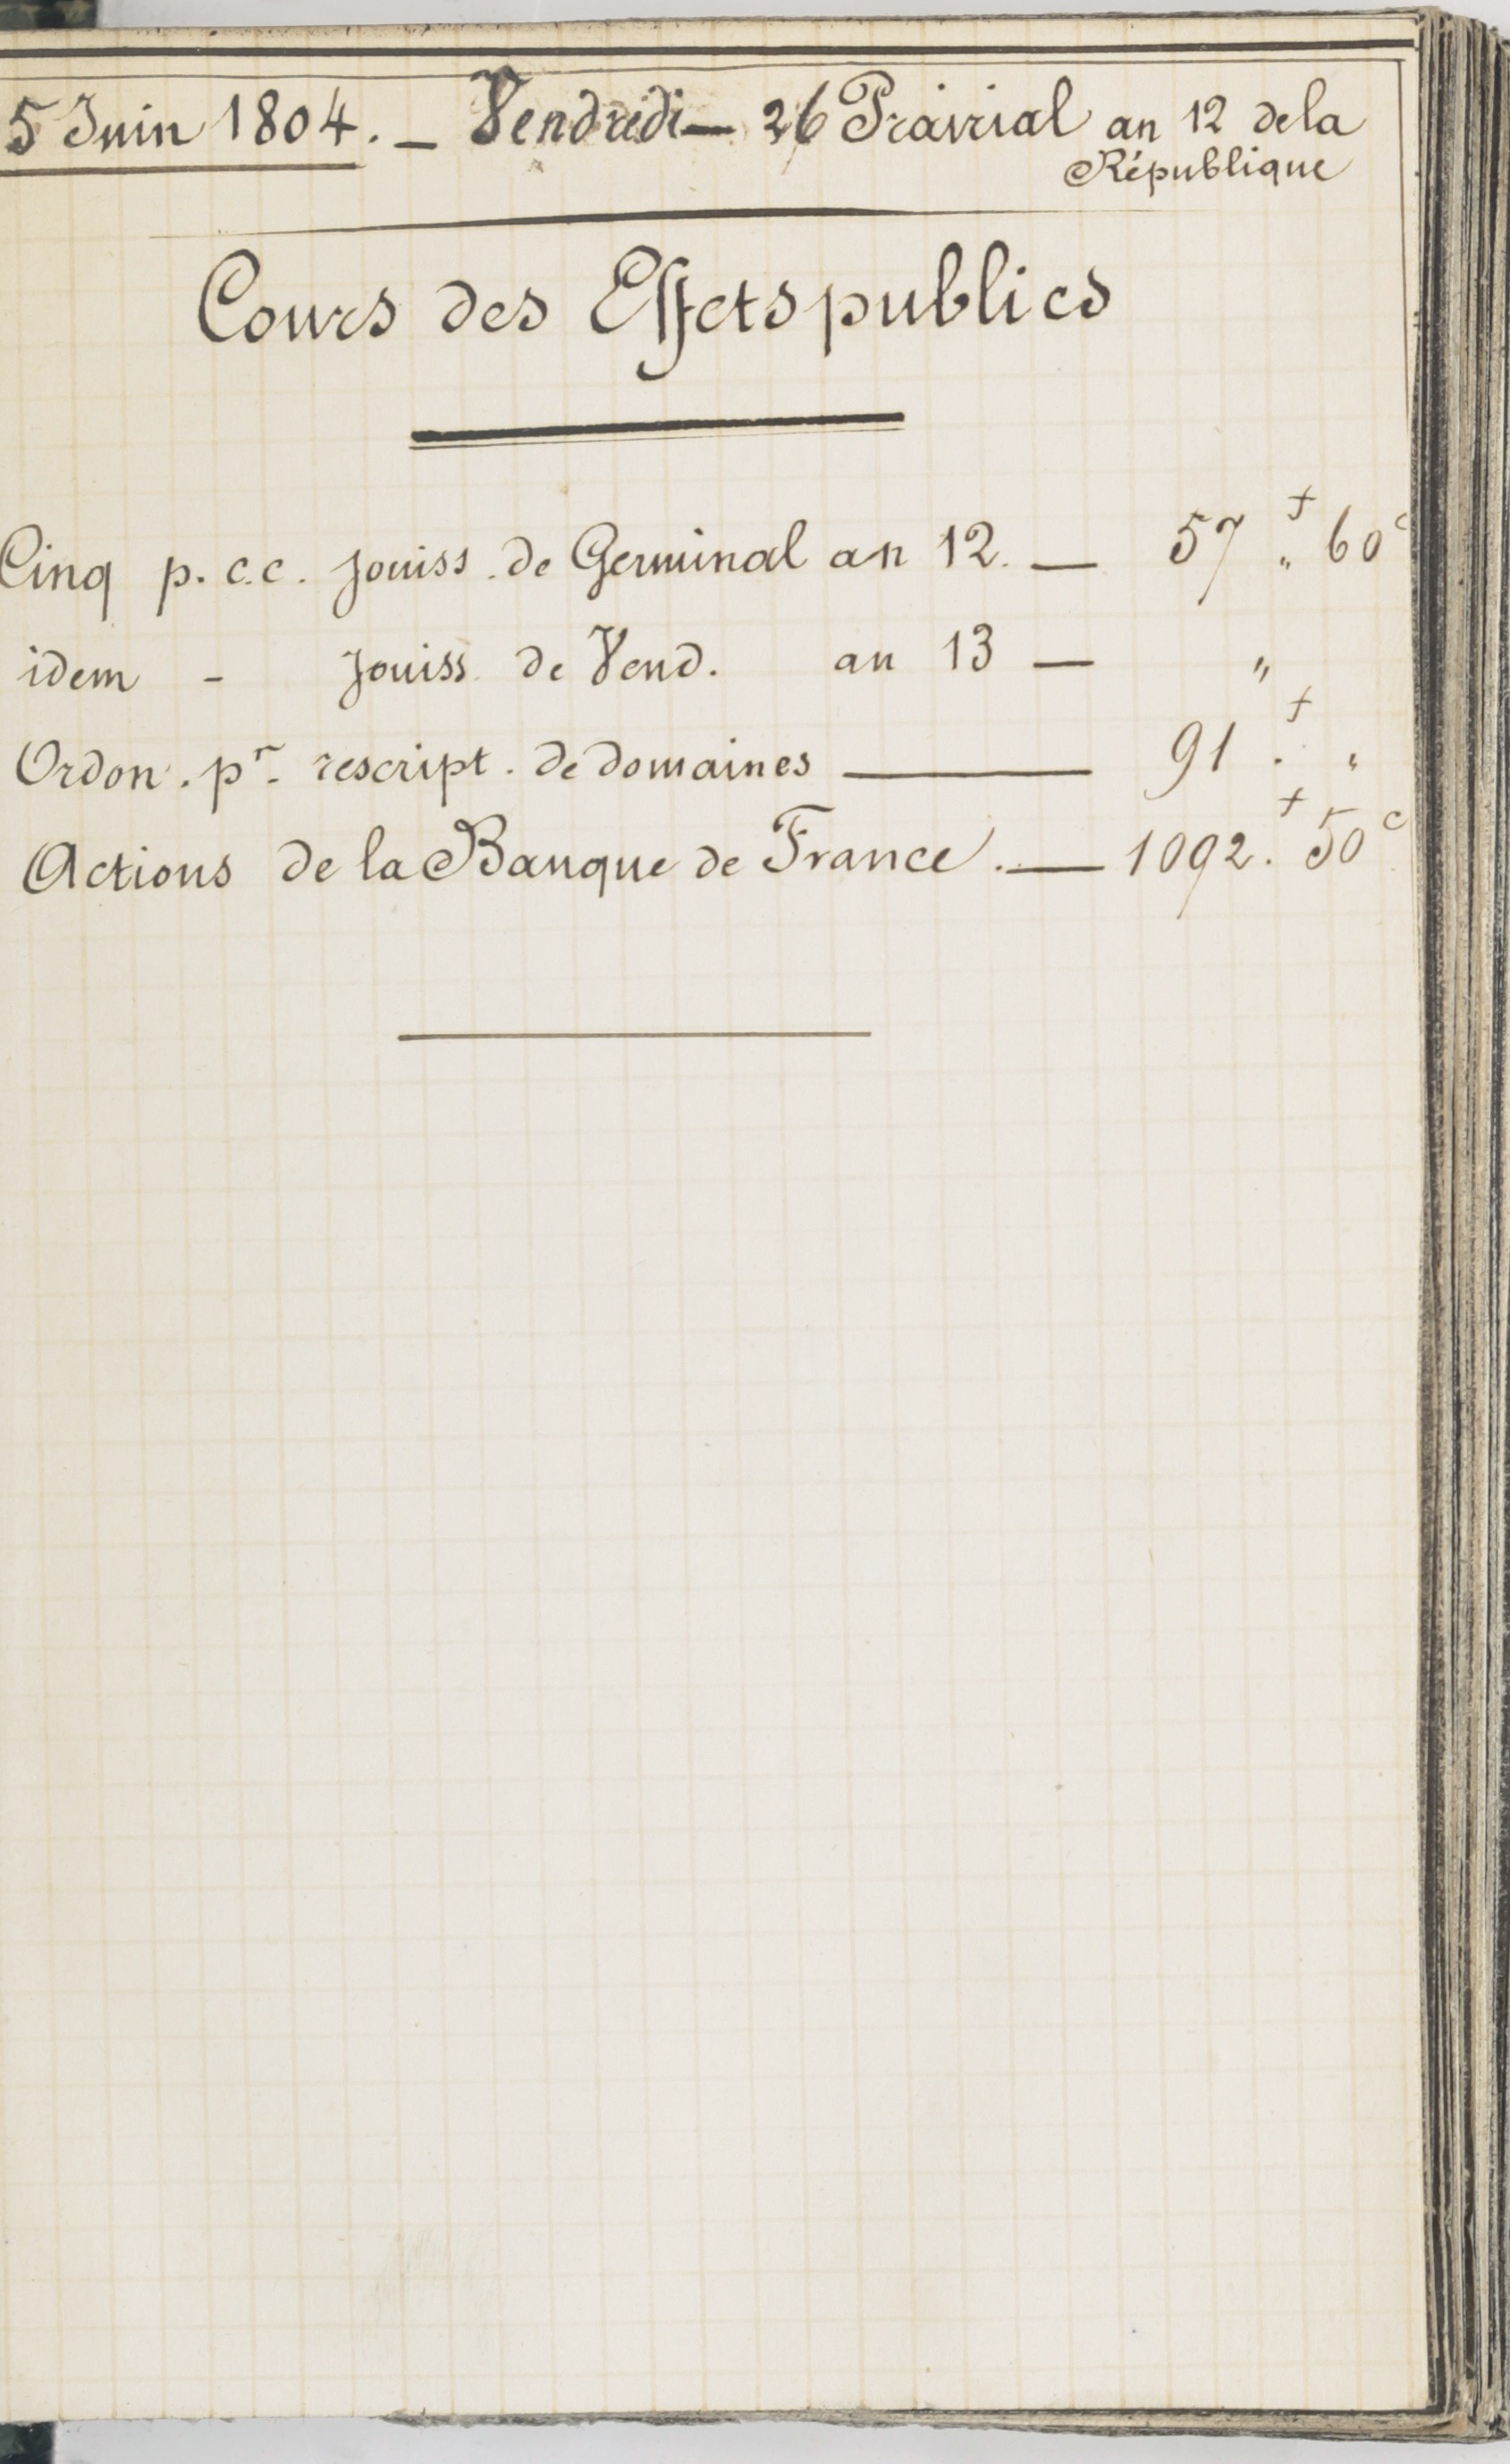 5 Juin 1804. — Vendredi — 26 Prairial an 12 de la
République
Cours des Effets publics
Cinq p. c. c. jouiss. de Germinal an 12. — 57 f " 60 c
idem - jouiss. de Vend. an 13 — "
Ordon. pr. rescript. de domaines — 91 f . "
Actions de la Banque de France. — 1092. f 50 c